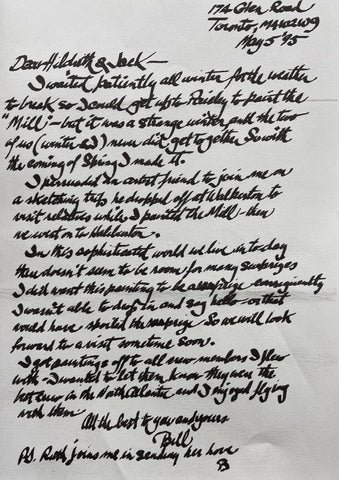 174 Glen Road
Toronto, M4W2W9
May 5 '75
Dear Hildreth & Jack —
I waited patiently all winter for the weather
to break so I could get up to Paisley to paint the
"Mill" — but it was a strange winter and the two
of us (winter & I) never did get together So with
the coming of Spring I made it.
I persuaded an artist friend to join me on
a sketching trip he dropped off at Walkerton to
visit relatives while I painted the Mill — then
we went on to Haliburton.
In this sophisticated world we live in to-day
there doesn't seem to be room for many surprises
I did want this painting to be a surprise consequently
I wasn't able to drop in and say hello — or that
would have spoiled the surprise So we will look
forward to a visit sometime soon.
I got paintings off to all crew members I flew
with — I wanted to let them know they were the
best crew in the North Atlantic and I enjoyed flying
with them
All the best to you and yours
Bill
P.S. Ruth joins me in sending her love
B